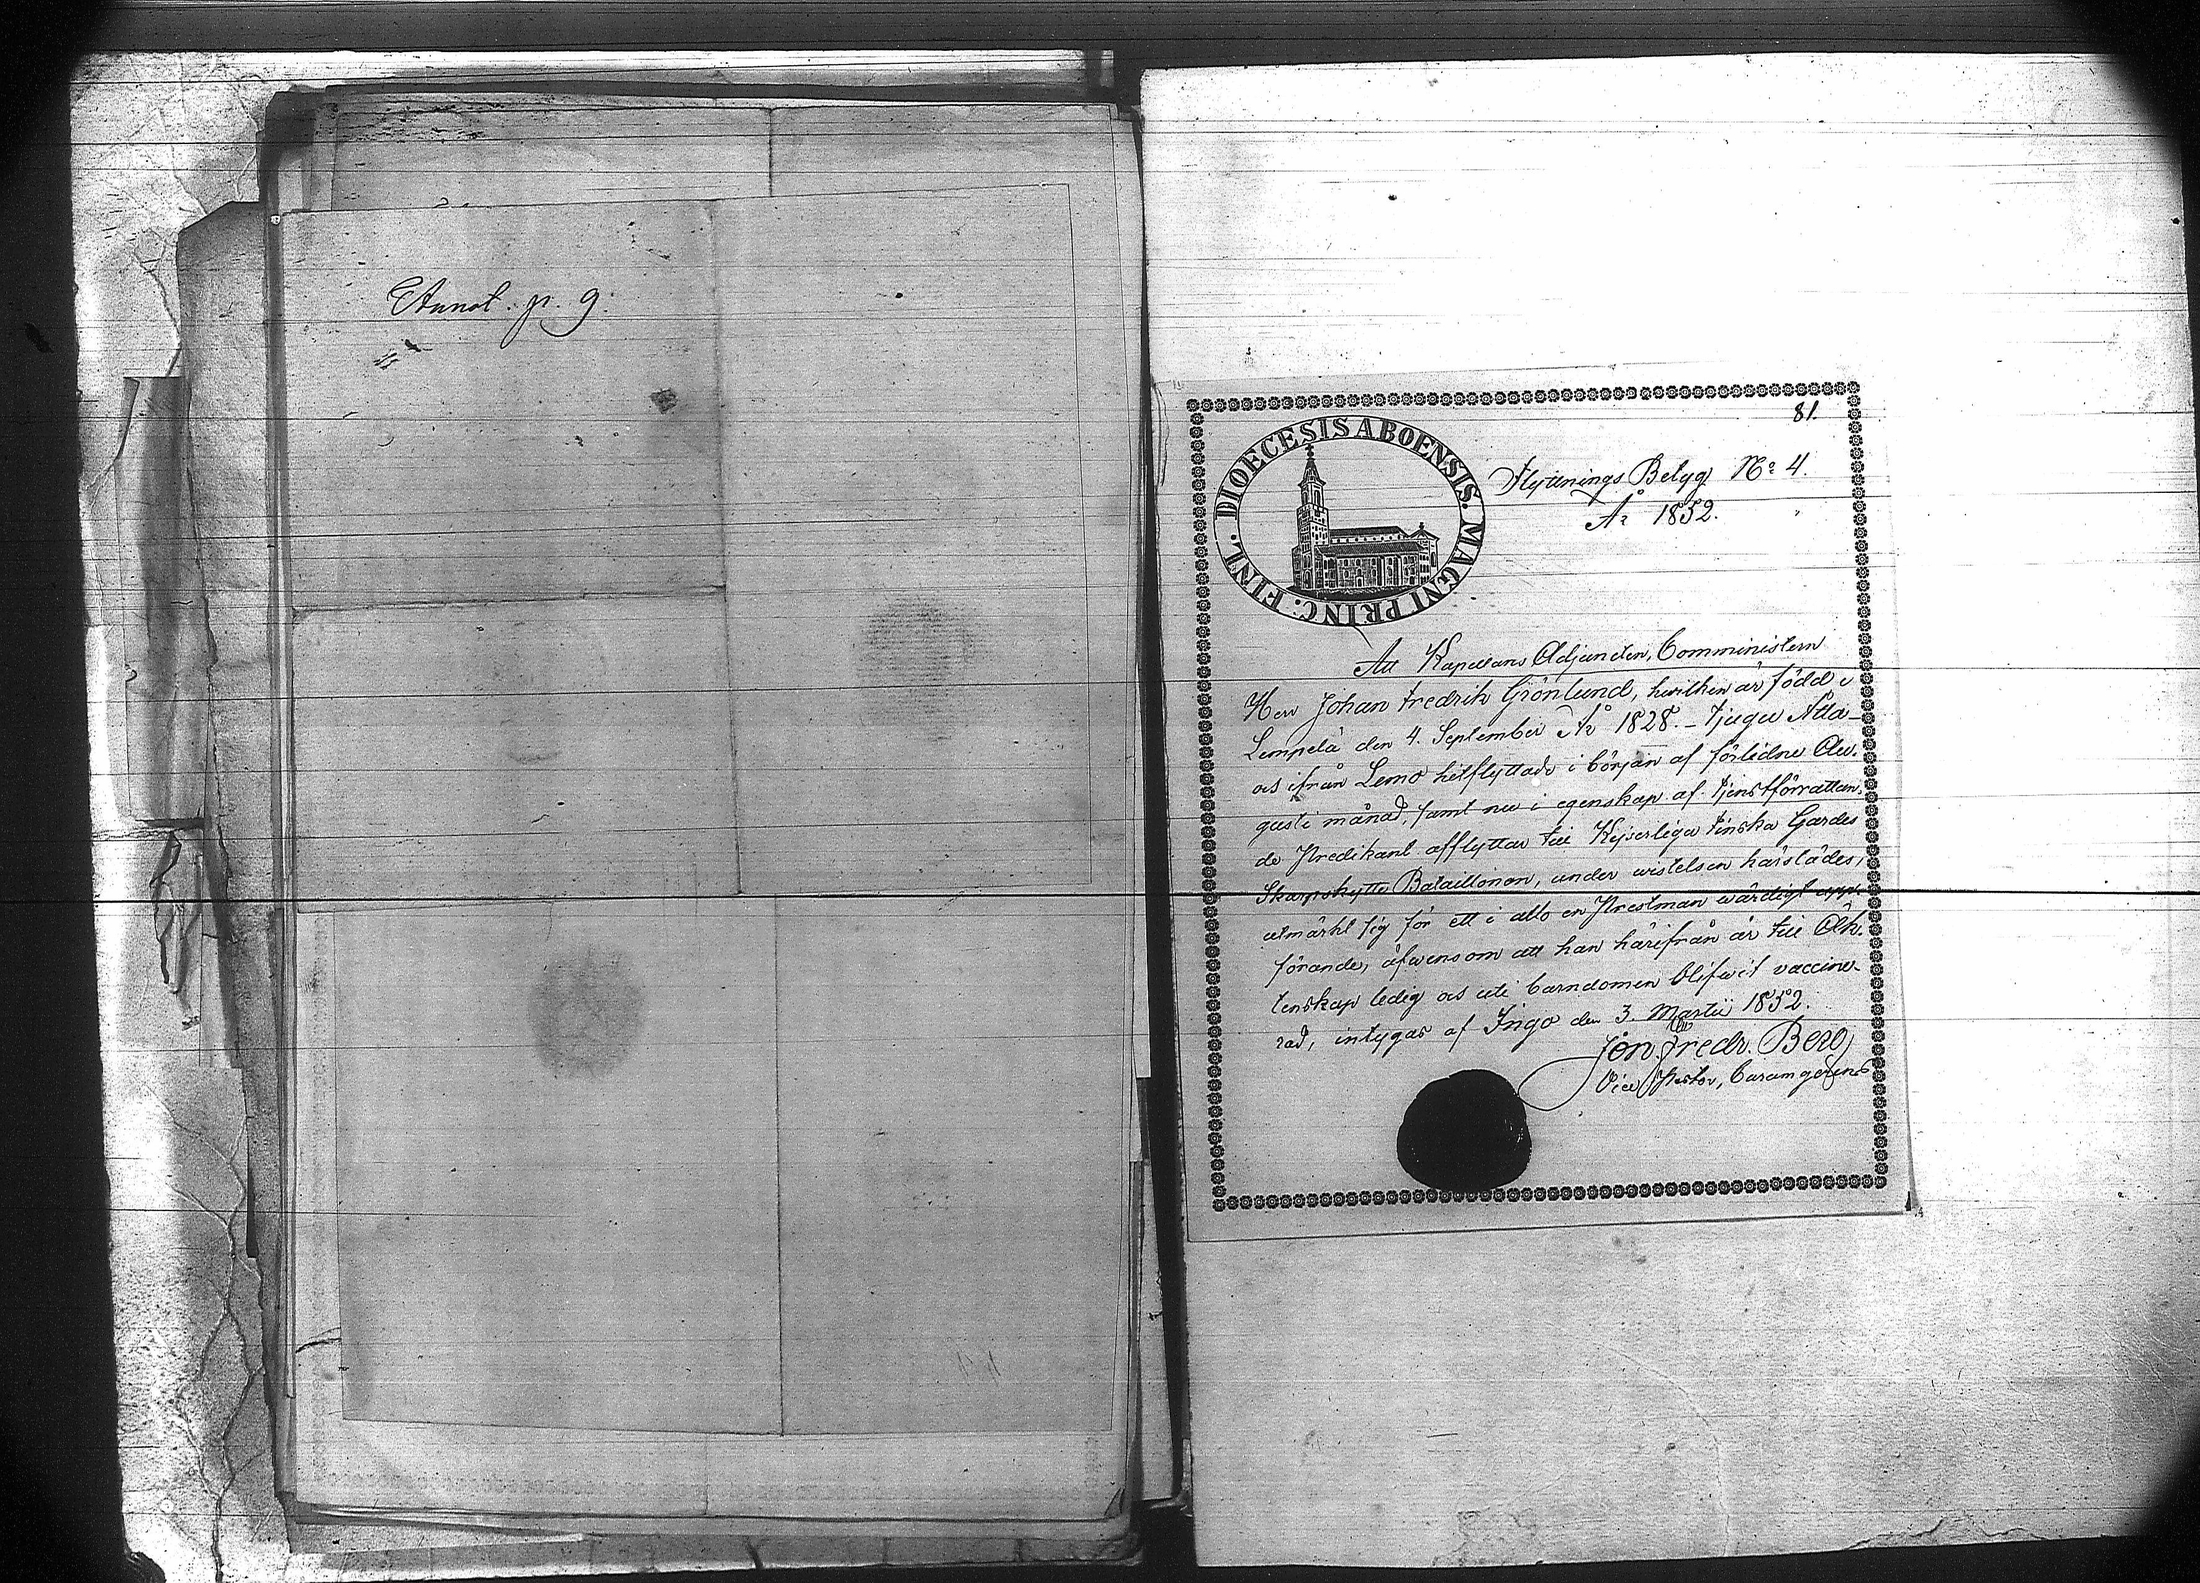 Annot. p. 9.
81.
DIOECESIS ABOENSIS. MAGNI PRINC. FINL.
Flyttnings Betyg No 4.
År 1852.
Att Kapellans Adjuncten, Comministern
Herr Johan Fredrik Grönlund, hvilken är född i
Lempelä den 4. September År 1828. – tjugu Åtta –
och ifrån Lemo hitflyttade i början af förlidne Au-
gusti månad, samt nu i egenskap af tjenstförrättan-
de Predikant afflyttar till Kejserliga Finska Gardes
Skarpskytte Bataillonen, under vistelsen härstädes,
utmärkt sig för ett i allo en Prestman värdigt upp-
förande, äfvensom att han härifrån är till Äk-
tenskap ledig och uti barndomen blifvit vaccine-
rad, intygas af Ingo den 3. Martii 1852.
Jon Fredr. Berg
Vice Pastor, Curam gerens